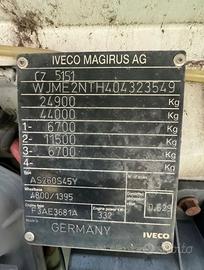 IVECO MAGIRUS AG
C7 5151
WJME2NTH404323549
24900 Kg
44000 Kg
1- 6700 Kg
2- 11500 Kg
3- 6700 Kg
4- Kg
AS260S45Y
Wheelbase
4800/1395
Engine type
F3AE3681A
Engine power kW
332
0.629
Made in
GERMANY IVECO